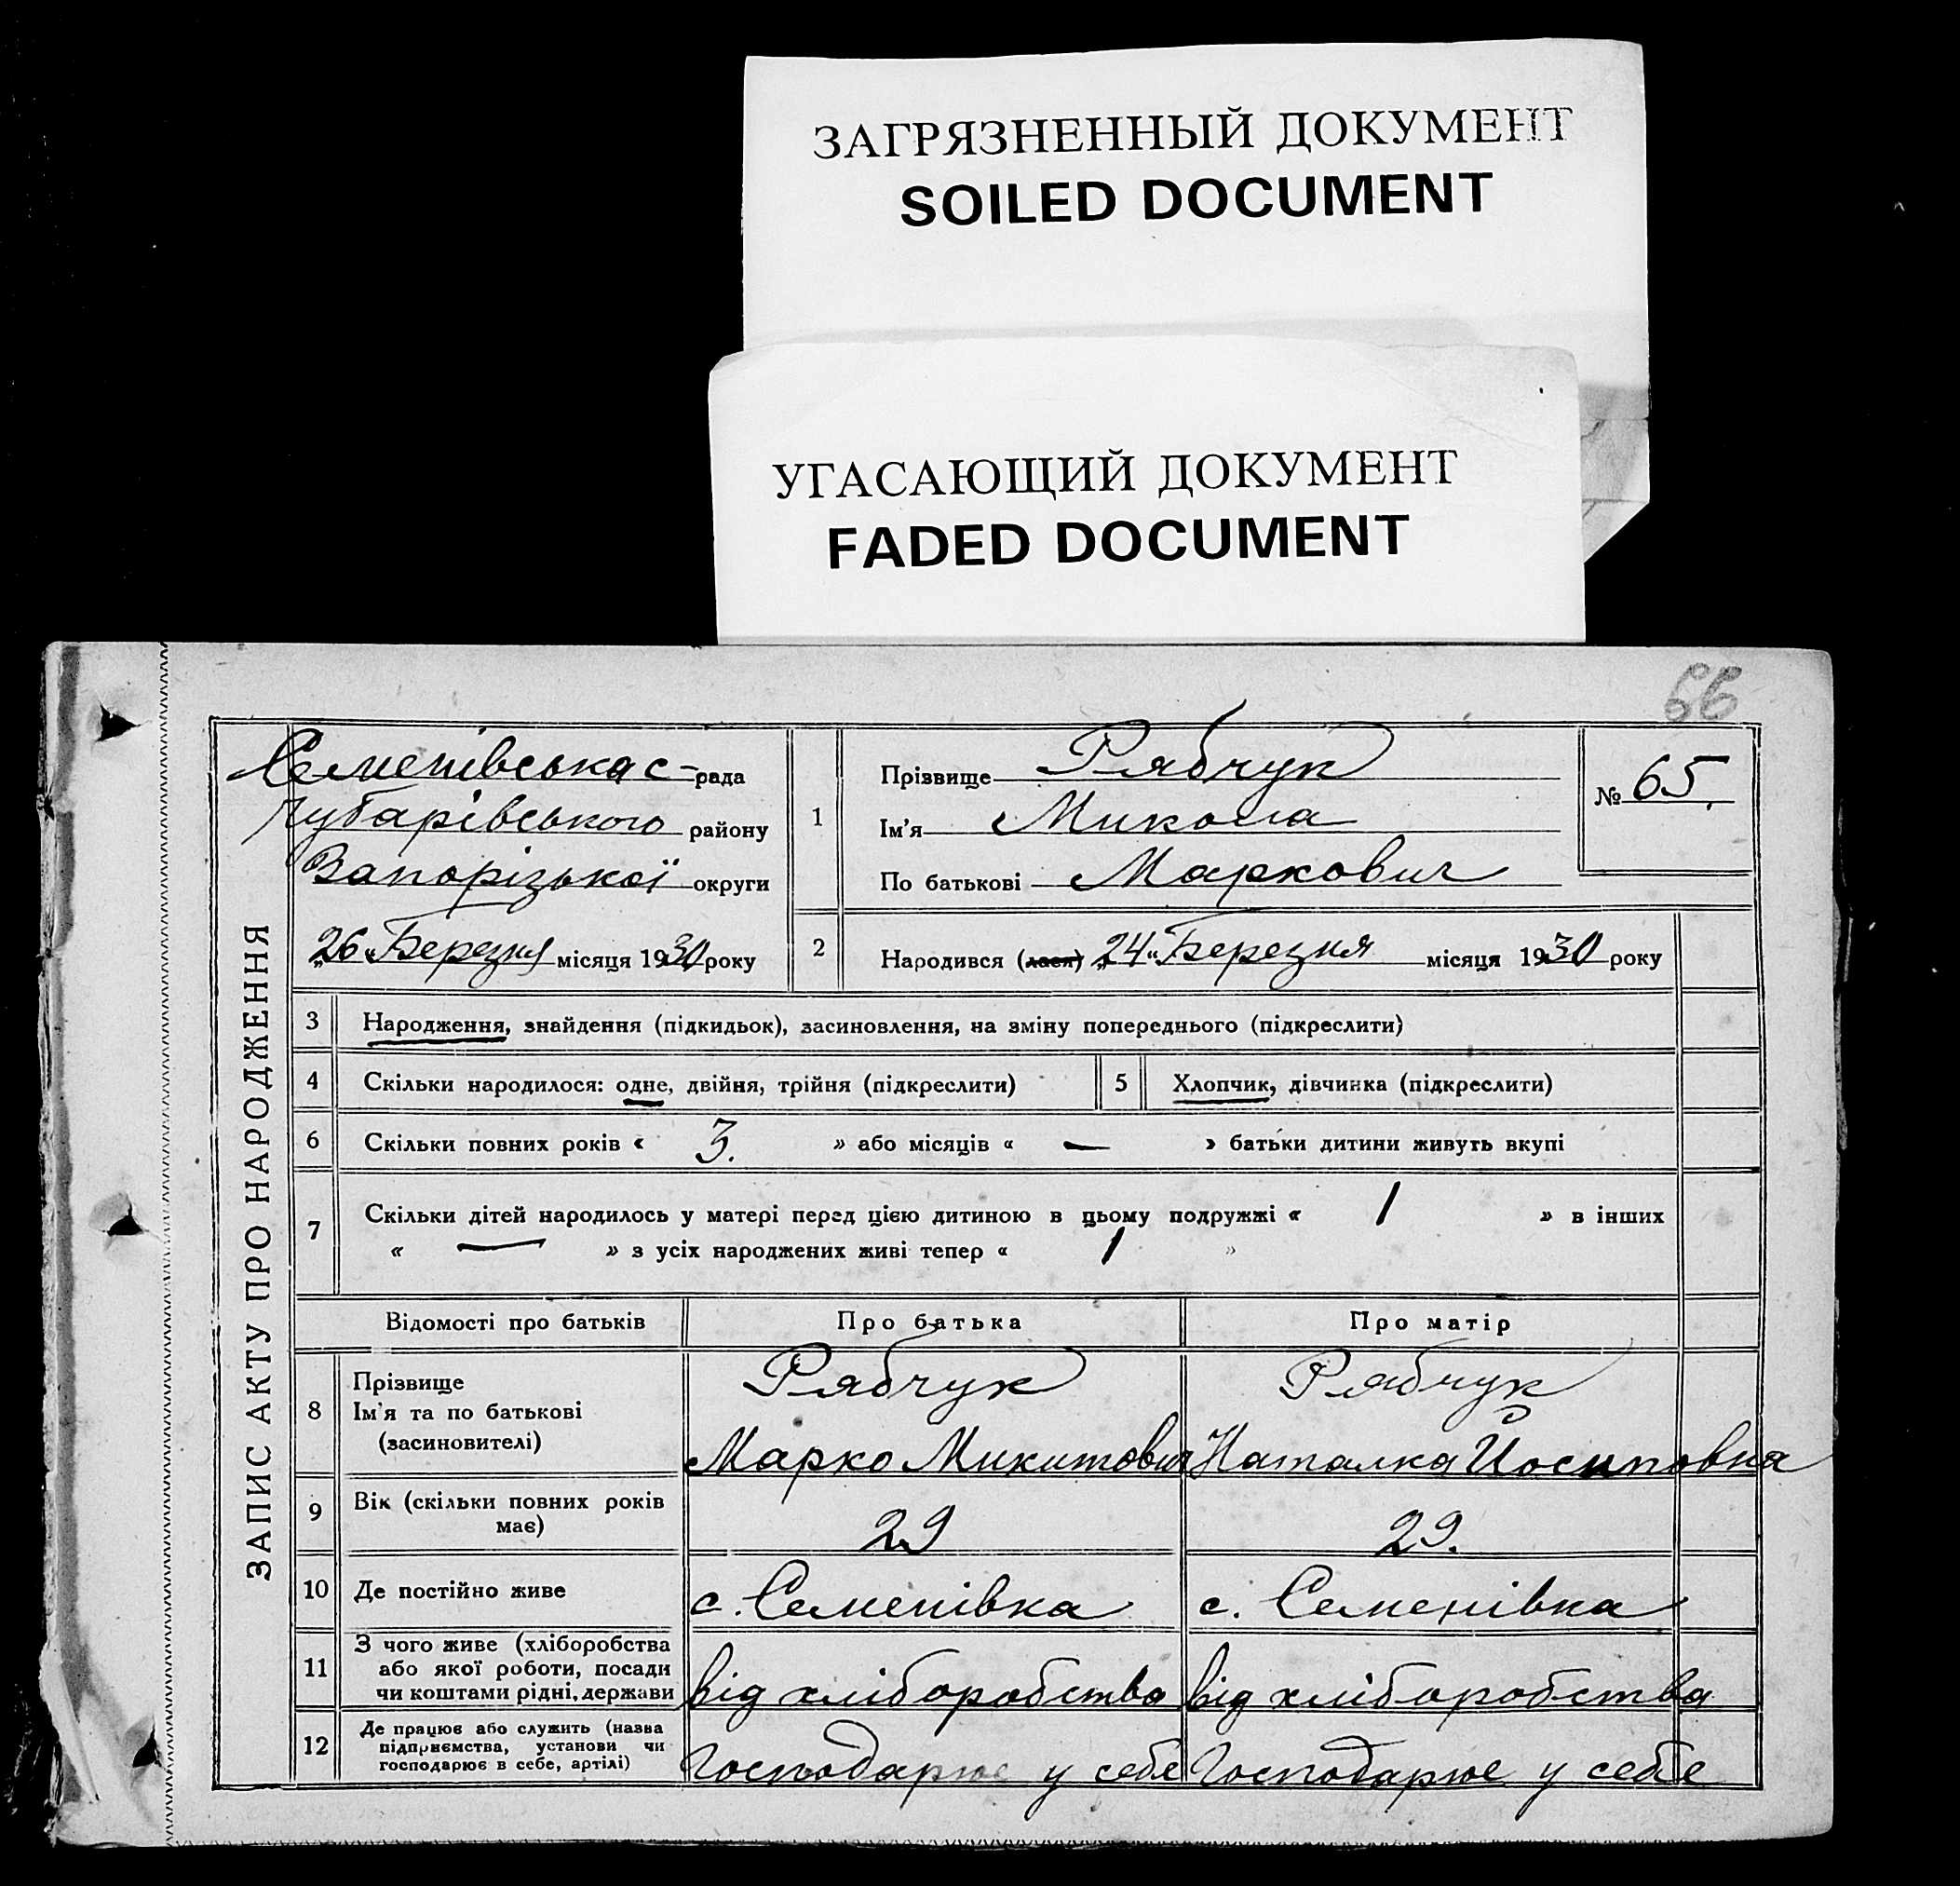 ЗАГРЯЗНЕННЫЙ ДОКУМЕНТ
SOILED DOCUMENT
УГАСАЮЩИЙ ДОКУМЕНТ
FADED DOCUMENT
66
ЗАПИС АКТУ ПРО НАРОДЖЕННЯ
Семенівська с-рада
Чубарівського району
Запорізької округи
„26“ Березня місяця 1930 року
1
Прізвище Рябчук
Ім'я Микола
По батькові Маркович
№ 65.
2
Народився (лася) „24“ Березня місяця 1930 року
3 Народження, знайдення (підкидьок), засиновлення, на зміну попереднього (підкреслити)
4 Скільки народилося: одне, двійня, трійня (підкреслити) 5 Хлопчик, дівчинка (підкреслити)
6 Скільки повних років « 3. » або місяців « — » батьки дитини живуть вкупі
7 Скільки дітей народилось у матері перед цією дитиною в цьому подружжі « 1 » в інших
« — » з усіх народжених живі тепер « 1 »
Відомості про батьків Про батька Про матір
8 Прізвище
Ім'я та по батькові
(засиновителі)
Рябчук
Марко Микитович
Рябчук
Наталка Йосиповна
9 Вік (скільки повних років
має)
29
29.
10 Де постійно живе с. Семенівка с. Семенівка
11 З чого живе (хліборобства
або якої роботи, посади
чи коштами рідні, держави
від хліборобства
від хліборобства
12 Де працює або служить (назва
підприємства, установи чи
господарює в себе, артілі)
Господарює у себе
Господарює у себе